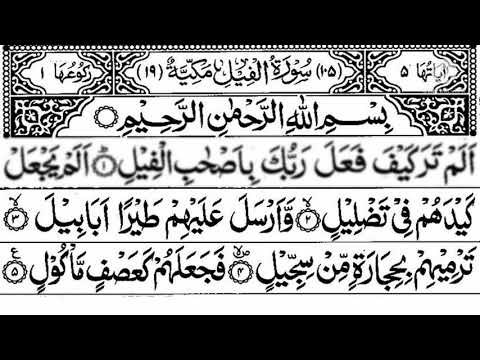 اٰيَاتُهَا ٥ (١٠٥) سُوْرَةُ الْفِيْلِ مَكِّيَّةٌ (١٩) رُكُوْعُهَا ١
بِسْمِ اللهِ الرَّحْمٰنِ الرَّحِيْمِ
اَلَمْ تَرَ كَيْفَ فَعَلَ رَبُّكَ بِاَصْحٰبِ الْفِيْلِ ۝١ اَلَمْ يَجْعَلْ
كَيْدَهُمْ فِيْ تَضْلِيْلٍ ۝٢ وَّاَرْسَلَ عَلَيْهِمْ طَيْرًا اَبَابِيْلَ ۝٣
تَرْمِيْهِمْ بِحِجَارَةٍ مِّنْ سِجِّيْلٍ ۝٤ فَجَعَلَهُمْ كَعَصْفٍ مَّاْكُوْلٍ ۝٥